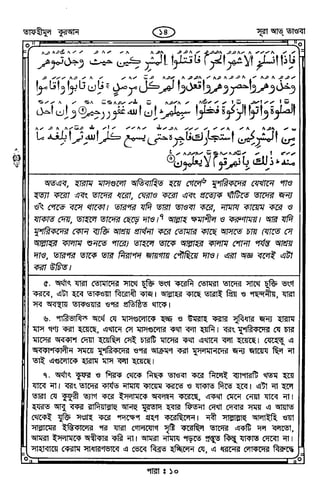 তাফহীমুল কুরআন
১৪
সূরা আত্ তাওবা
فَإِذَا انْسَلَخَ الْأَشْهُرُ الْحُرُمُ فَاقْتُلُوا الْمُشْرِكِينَ حَيْثُ وَجَدْتُمُوهُمْ
وَخُذُوهُمْ وَاحْصُرُوهُمْ وَاقْعُدُوا لَهُمْ كُلَّ مَرْصَدٍ ۚ فَإِنْ تَابُوا وَأَقَامُوا
الصَّلٰوةَ وَآتَوُا الزَّكٰوةَ فَخَلُّوا سَبِيلَهُمْ ۚ إِنَّ اللّٰهَ غَفُورٌ رَحِيمٌ ۝ وَإِنْ أَحَدٌ
مِنَ الْمُشْرِكِينَ اسْتَجَارَكَ فَأَجِرْهُ حَتّٰى يَسْمَعَ كَلٰمَ اللّٰهِ ثُمَّ أَبْلِغْهُ مَا
مَنَهُ ۚ ذٰلِكَ بِأَنَّهُمْ قَوْمٌ لَا يَعْلَمُونَ ۝
অতএব, হারাম মাসগুলো অতিবাহিত হয়ে গেলে৬ মুশরিকদের যেখানে পাও
হত্যা করো এবং তাদের ধরো, ঘেরাও করো এবং প্রত্যেক ঘাঁটিতে তাদের জন্য
ওঁৎ পেতে বসে থাকো। তারপর যদি তারা তাওবা করে, নামায কায়েম করে ও
যাকাত দেয়, তাহলে তাদের ছেড়ে দাও।৭ আল্লাহ ক্ষমাশীল ও করুণাময়। আর যদি
মুশরিকদের কোন ব্যক্তি আশ্রয় প্রার্থনা করে তোমার কাছে আসতে চায় (যাতে সে
আল্লাহর কালাম শুনতে পারে) তাহলে তাকে আল্লাহর কালাম শোনা পর্যন্ত আশ্রয়
দাও, তারপর তাকে তার নিরাপদ জায়গায় পৌছিয়ে দাও। এরা অজ্ঞ বলেই এটা
করা উচিত।
৫. অর্থাৎ যারা তোমাদের সাথে চুক্তি ভংগ করেনি তোমরা তাদের সাথে চুক্তি ভংগ
করবে, এটা হবে তাকওয়া বিরোধী কাজ। আল্লাহর কাছে তারাই প্রিয় ও পছন্দনীয়, যারা
সব অবস্থায় তাকওয়ার ওপর প্রতিষ্ঠিত থাকে।
৬. পারিভাষিক অর্থে যে মাসগুলোকে হজ্জ ও উমরাহ করার সুবিধার জন্য হারাম
মাস গণ্য করা হয়েছে, এখানে সে মাসগুলোর কথা বলা হয়নি। বরং মুশরিকদের যে চার
মাসের অবকাশ দেয়া হয়েছিল সেই চারটি মাসের কথা এখানে বলা হয়েছে। যেহেতু এ
অবকাশকালীন সময়ে মুশরিকদের ওপর আক্রমণ করা মুসলমানদের জন্য জায়েয ছিল না
তাই এগুলোকে হারাম মাস বলা হয়েছে।
৭. অর্থাৎ কুফর ও শিরক থেকে নিছক তাওবা করে নিলেই ব্যাপারটি খতম হয়ে
যাবে না। বরং তাদের কার্যত নামায কায়েম করতে ও যাকাত দিতে হবে। এটা না হলে
তারা যে কুফরী ত্যাগ করে ইসলামকে অবলম্বন করেছে, একথা মেনে নেয়া যাবে না।
হযরত আবু বকর রাদিয়াল্লাহু আনহু মুরতাদ হবার ফিতনা দেখা দেবার সময় এ আয়াত
থেকেই যুক্তি সংগ্রহ করে পদক্ষেপ গ্রহণ করেছিলেন। নবী সাল্লাল্লাহু আলাইহি ওয়া
সাল্লামের ইন্তিকালের পর যারা গোলযোগ সৃষ্টি করেছিল তাদের একটি দল বলতো,
আমরা ইসলামকে অস্বীকার করি না। আমরা নামায পড়তে প্রস্তুত কিন্তু যাকাত দেবো না।
সাহাবায়ে কেরাম সাধারণভাবে এ ভেবে বিব্রত হচ্ছিলেন যে, এ ধরনের লোকদের বিরুদ্ধে
পারা : ১০